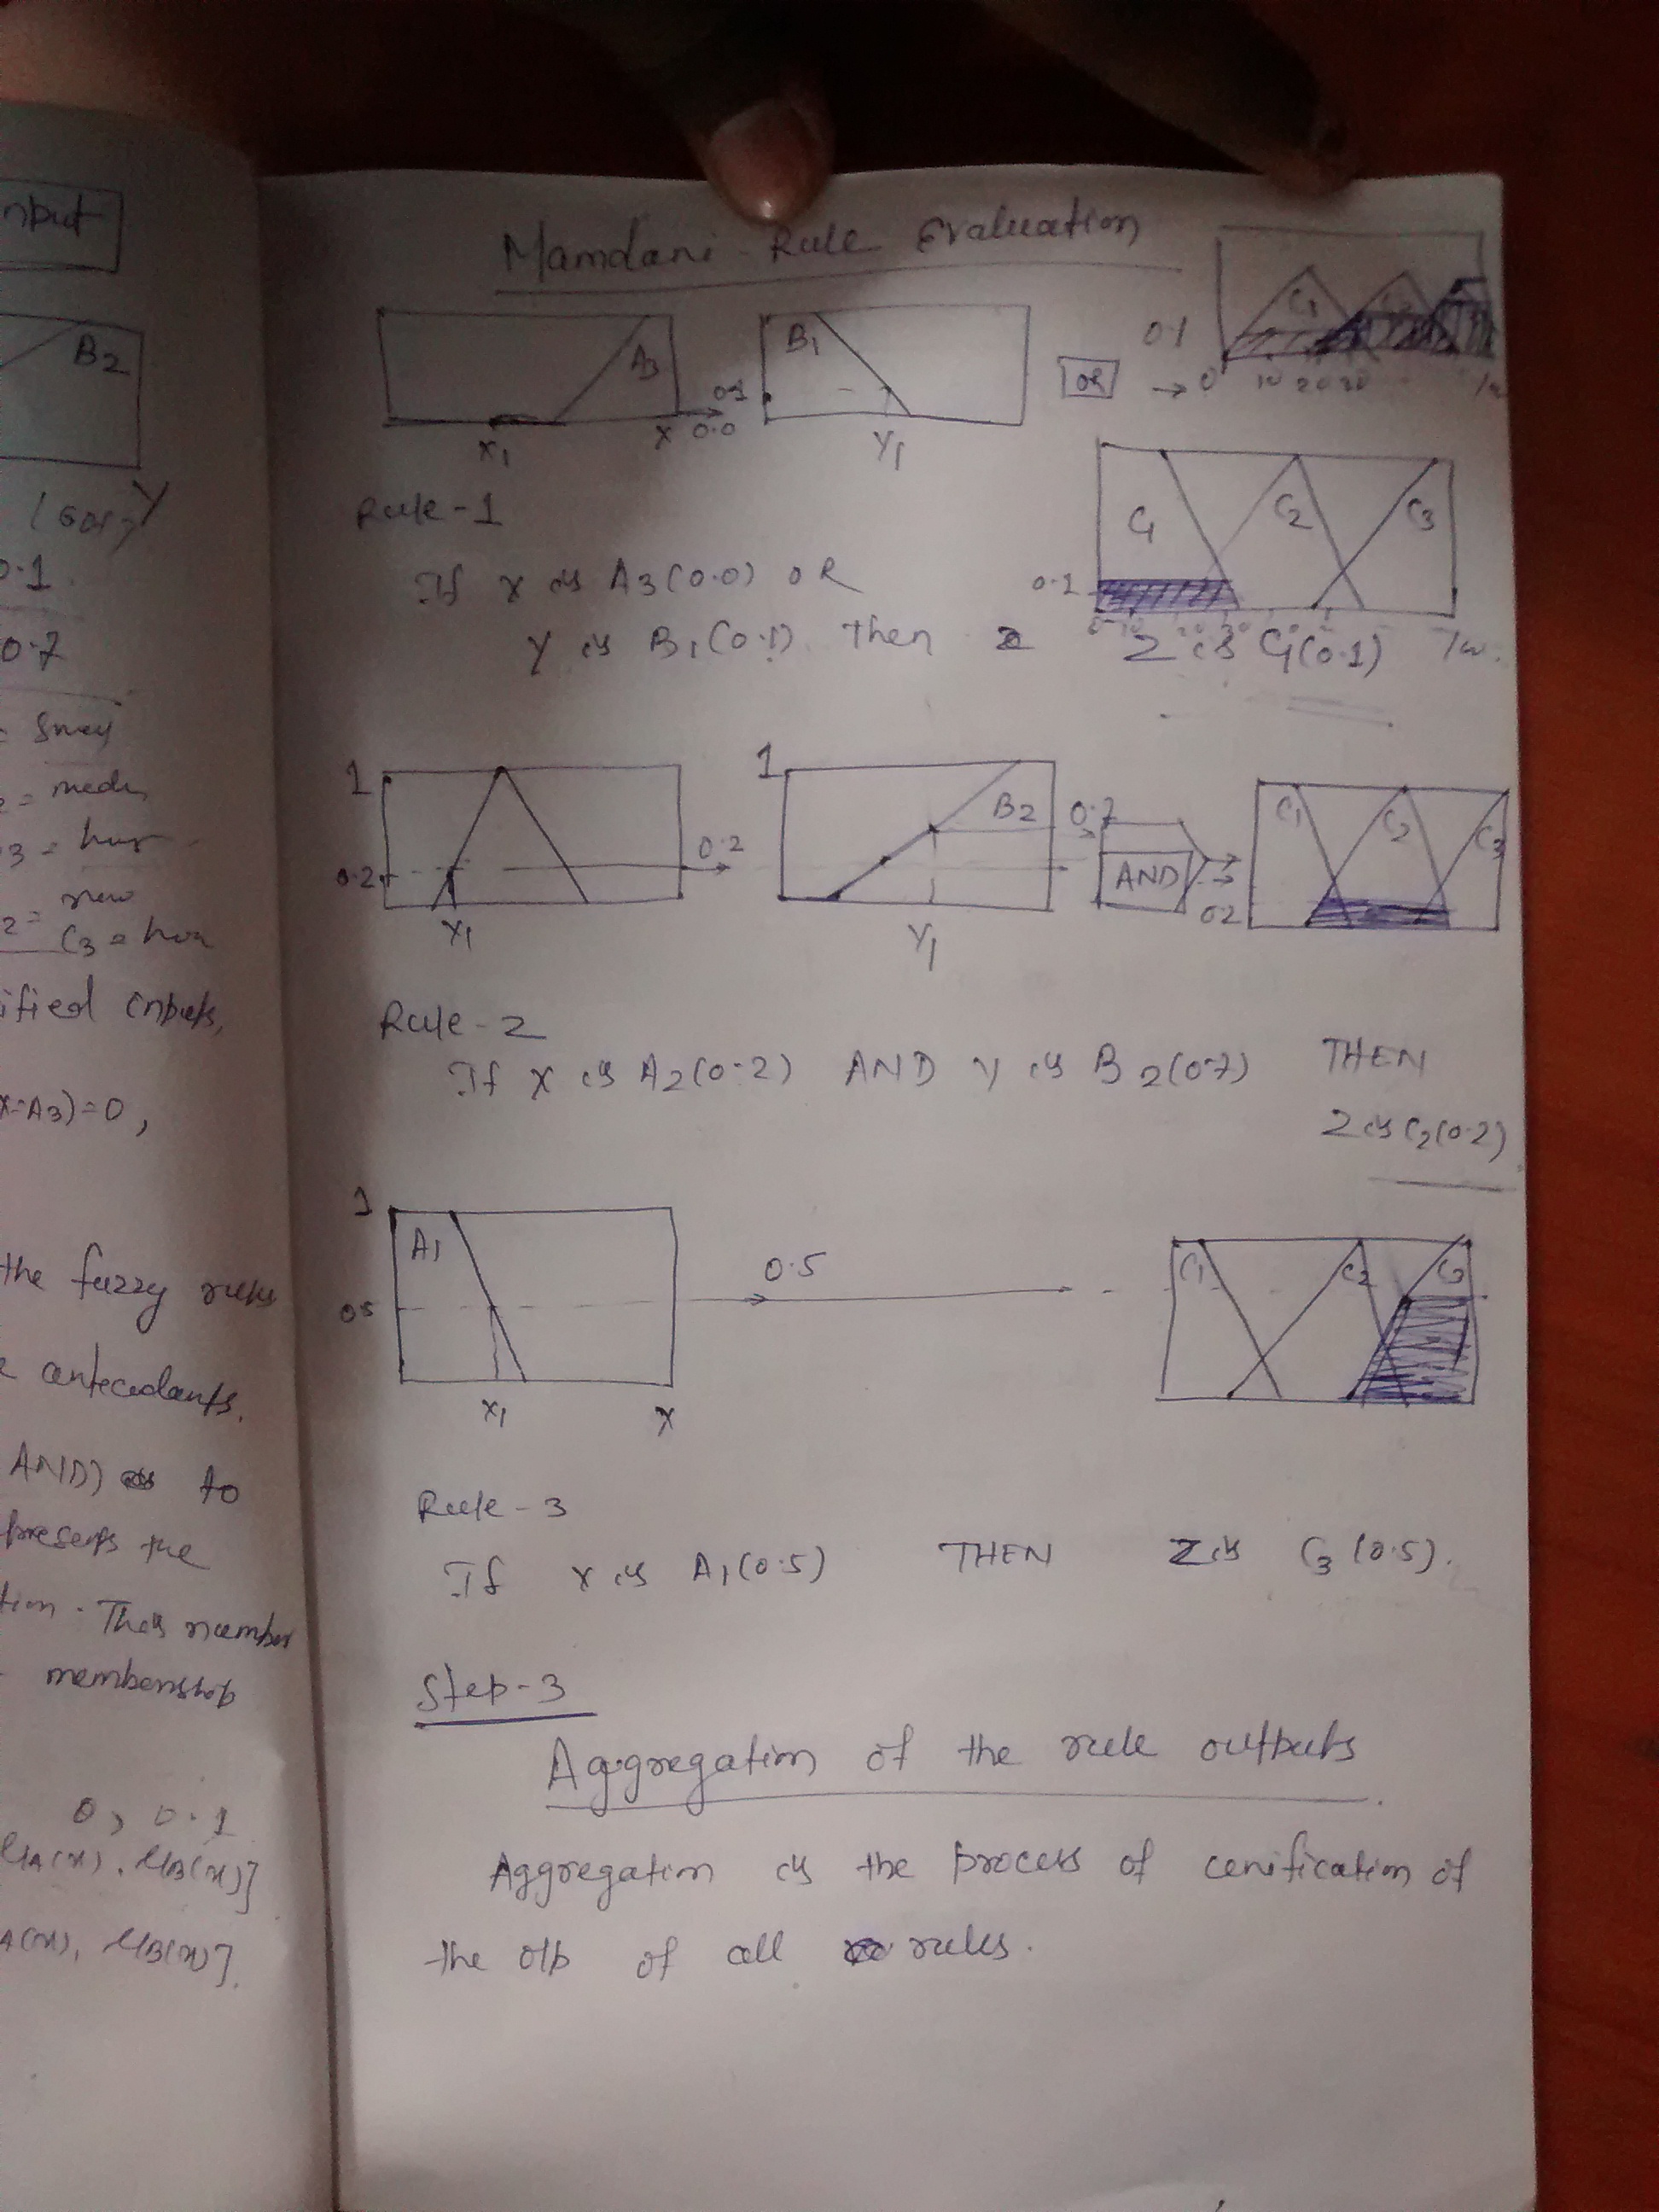 nput
B2
Y
0.1
0.7
3 =
2 =
C3 =
ified inputs,
x=A3)=0,
the fuzzy rules
antecedants.
AND) to
presents the
tion. This number
membership
0, 0.1
μA(x), μB(x)]
A(x), μB(x)].
Mamdani Rule Evaluation
A3
x1
X
0.0
0.1
B1
Y1
OR
0.1
C1
C2
0 10 20 30
Rule-1
If x is A3(0.0) OR
Y is B1(0.1) Then Z is C1(0.1)
C1
C2
C3
0.1
0 10 20 30
1
0.2
x1
0.2
1
B2
Y1
0.7
AND
0.2
C1
C2
C3
Rule-2
If x is A2(0.2) AND y is B2(0.7) THEN
Z is C2(0.2)
1
A1
0.5
x1
X
0.5
C1
C2
C3
Rule-3
If x is A1(0.5) THEN Z is C3(0.5).
Step-3
Aggregation of the rule outputs.
Aggregation is the process of cenification of
the o/p of all rules.